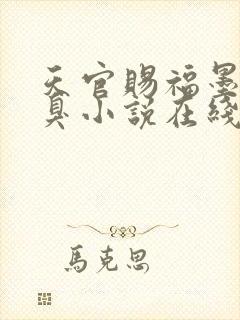 天官賜福墨
臭小說在綫
馬克思